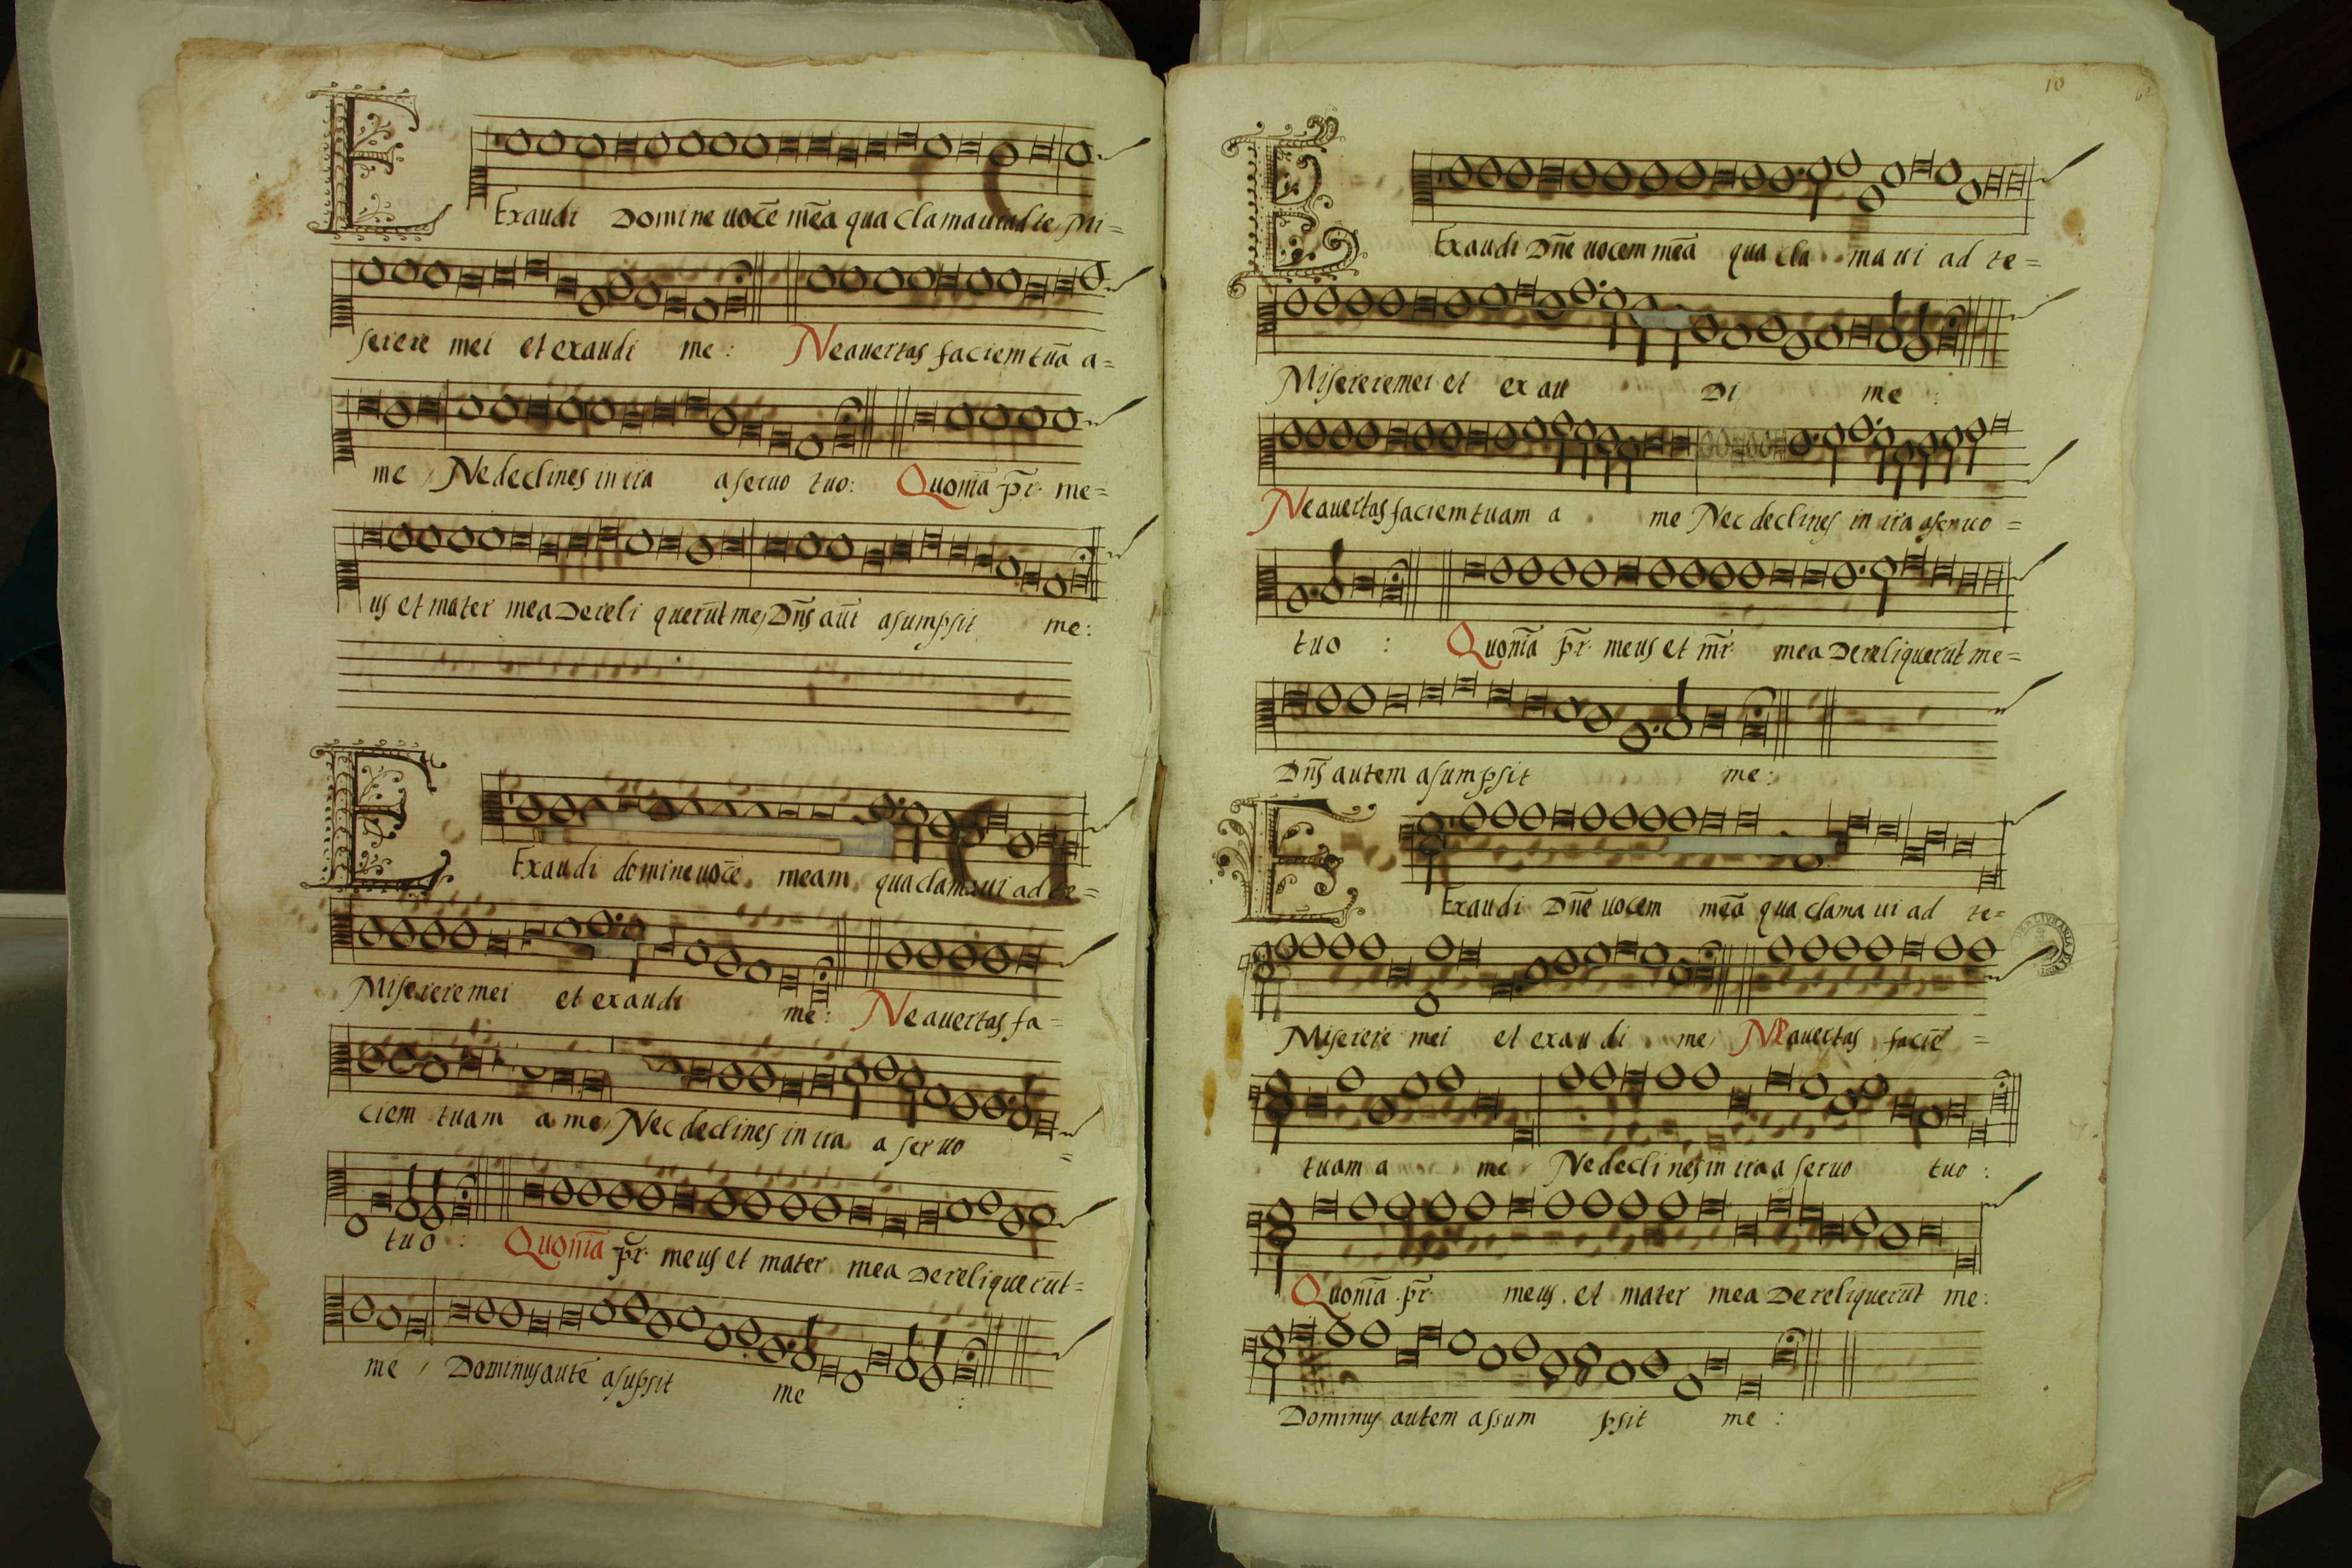 Exaudi Domine uocē mēa qua clamaui ad te Mi=
serere mei et exaudi me: Ne auertas faciem tuā a=
me Ne declines in ira a seruo tuo: Quoniā pr̄ me=
us et mater mea Dereli querūt me, Dn̄s aūt asumpsit me:
Exaudi domine uocē meam qua clamaui ad te=
Miserere mei et exaudi me: Ne auertas fa=
ciem tuam a me, Nec declines in ira a seruo =
tuo: Quoniā pr̄ meus et mater mea Dereliquerūt=
me, Dominus autē asūpsit me :
10
Exaudi Dn̄e uocem mēa qua cla maui ad te=
Miserere mei et exau Di me :
Ne auertas faciem tuam a me Nec declines in ira a seruo =
tuo : Quoniā pr̄ meus et mr̄ mea Dereliquerūt me=
Dn̄s autem asumpsit me:
Exaudi Dn̄e uocem mēa qua clama ui ad te=
Miserere mei et exau di me, Ne auertas faciē =
tuam a me, Ne declines in ira a seruo tuo :
Quoniā pr̄ meus et mater mea Dereliquerūt me:
Dominus autem assum psit me :